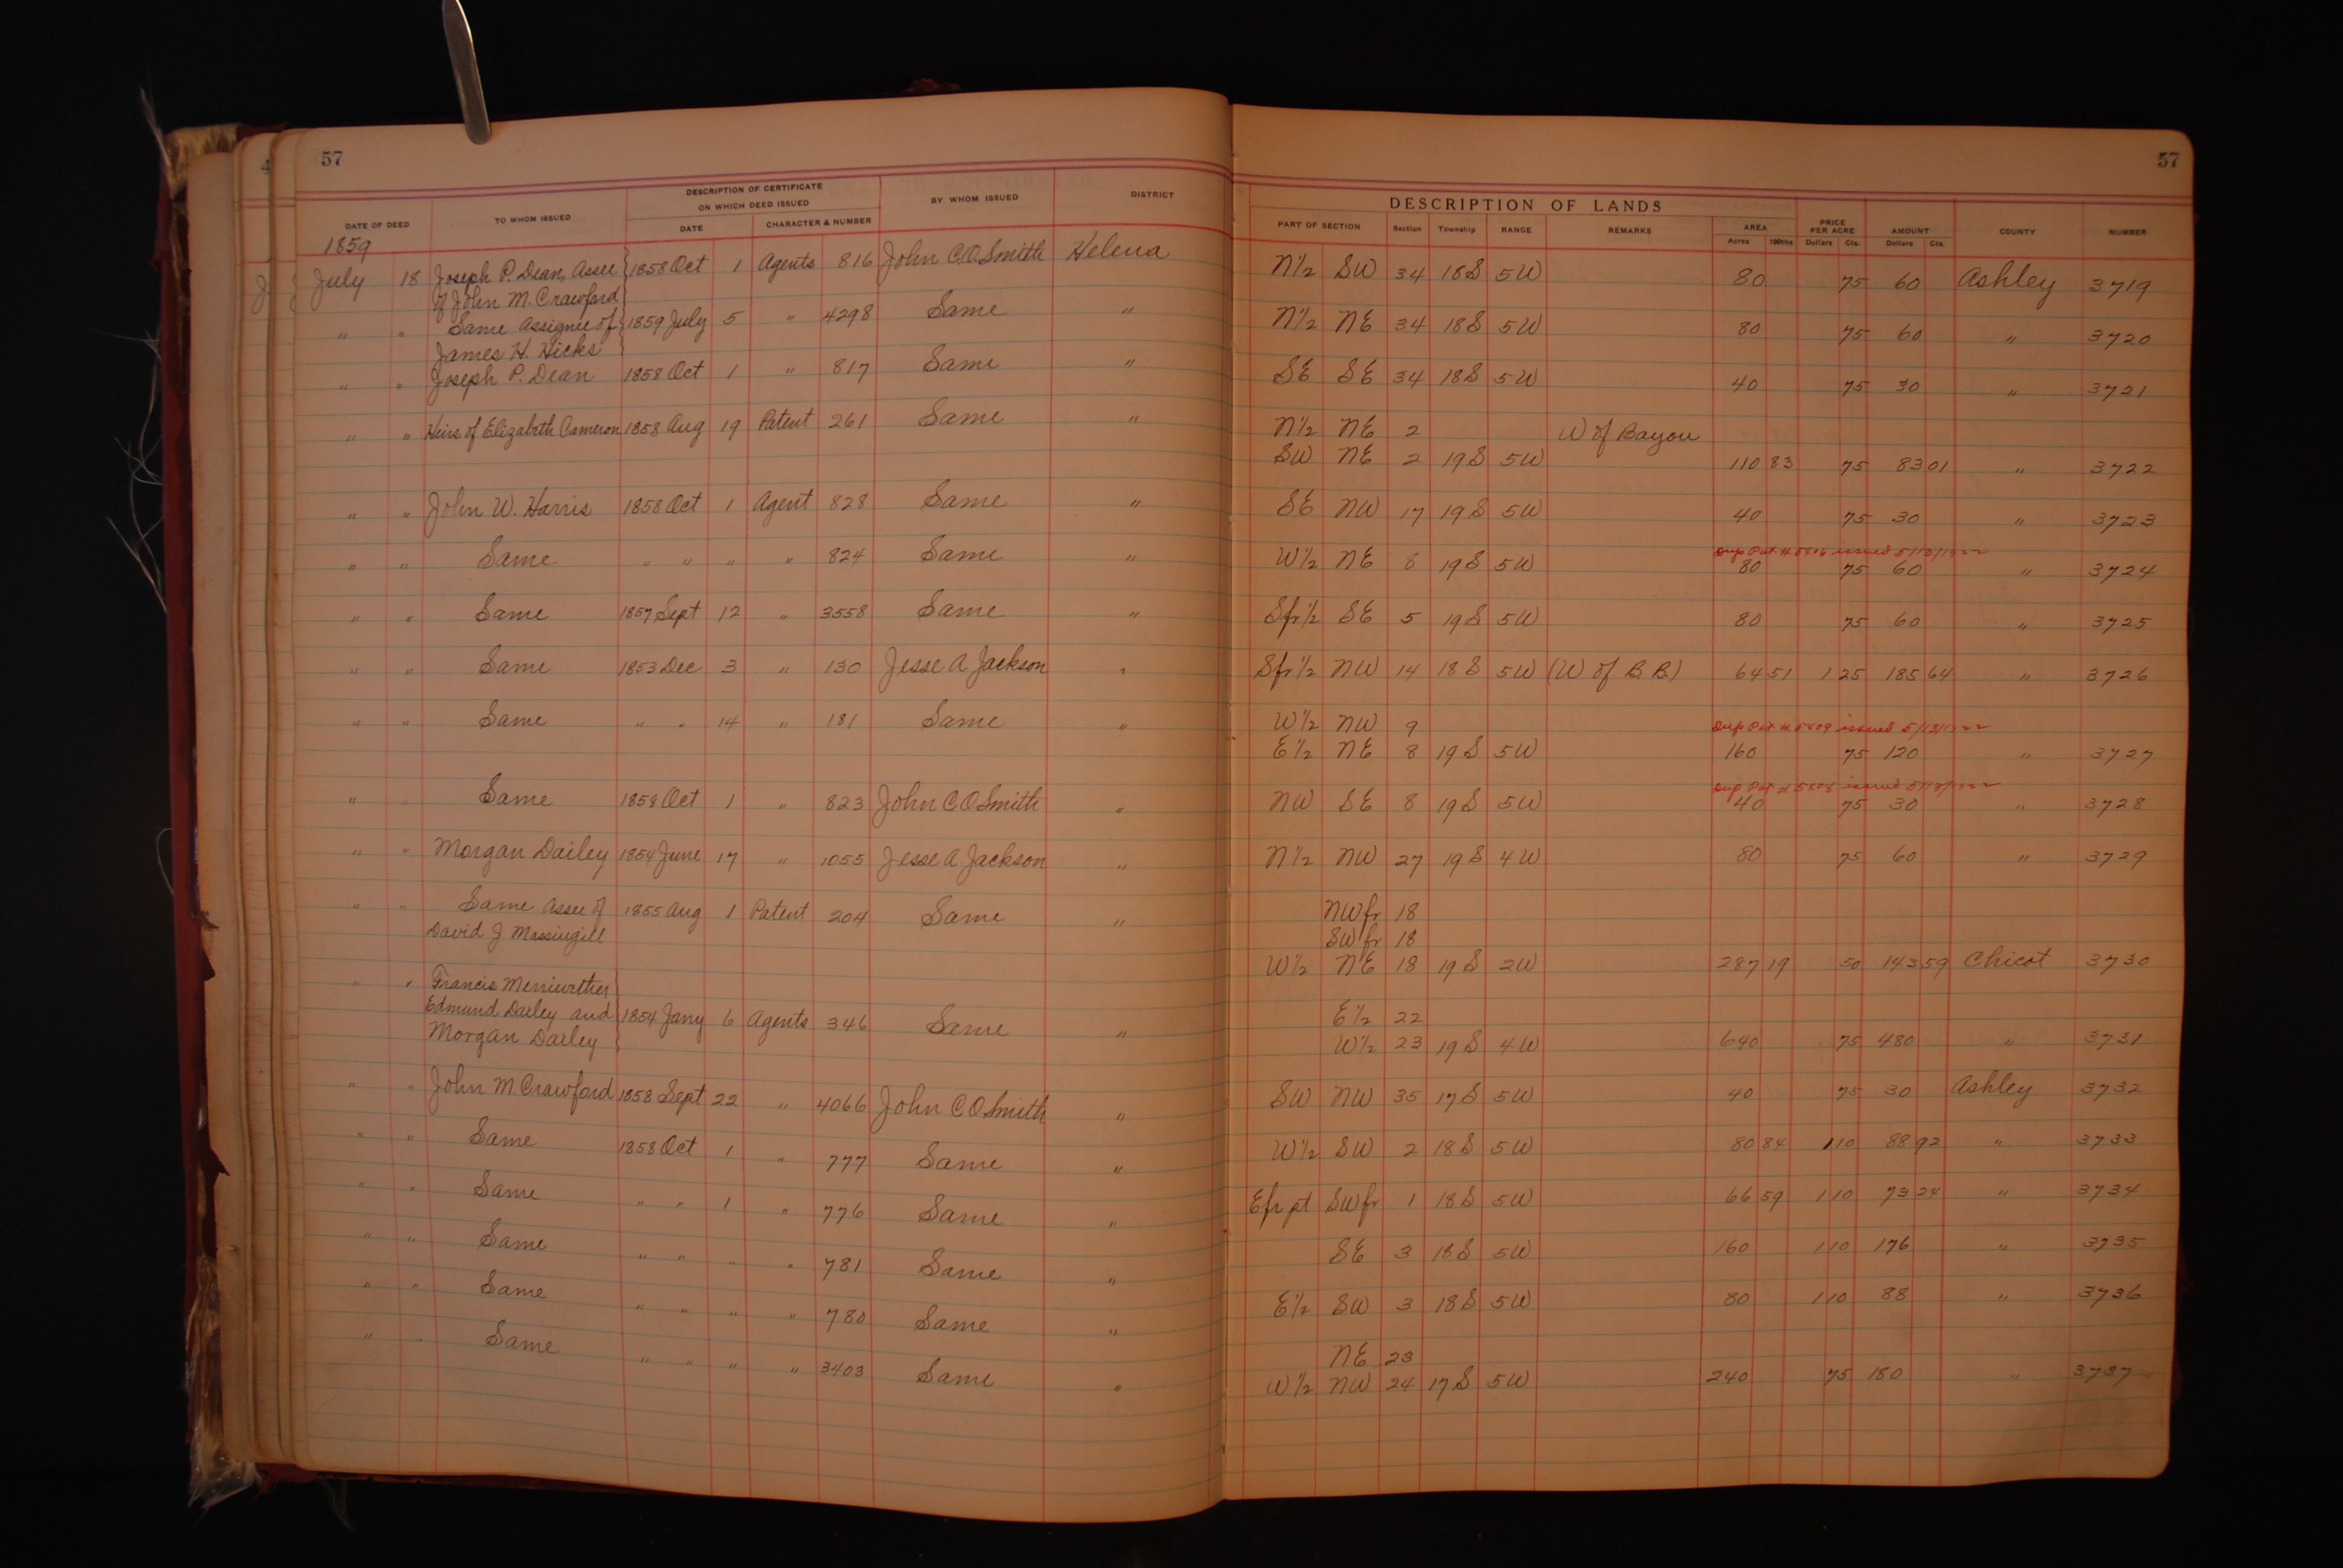 57
57
DESCRIPTION OF CERTIFICATE ON WHICH DEED ISSUED
DESCRIPTION OF LANDS
DATE OF DEED TO WHOM ISSUED DATE CHARACTER & NUMBER BY WHOM ISSUED DISTRICT PART OF SECTION Section Township RANGE REMARKS AREA Acres 100ths PRICE PER ACRE Dollars Cts. AMOUNT Dollars Cts. COUNTY NUMBER
1859
July 18 Joseph P. Dean, Assee 1858 Oct 1 Agents 816 John C.O. Smith Helena N½ SW 34 18S 5W 80 75 60 Ashley 3719
of John M. Crawford
" " Same Assignee of 1859 July 5 " 4298 Same " N½ NE 34 18S 5W 80 75 60 " 3720
James H. Hicks
" " Joseph P. Dean 1858 Oct 1 " 817 Same " SE SE 34 18S 5W 40 75 30 " 3721
" " Heirs of Elizabeth Cameron 1858 Aug 19 Patent 261 Same " N½ NE 2 W of Bayou
SW NE 2 19S 5W 110 83 75 83 01 " 3722
" " John W. Harris 1858 Oct 1 Agent 828 Same " SE NW 17 19S 5W 40 75 30 " 3723
Dup Pat # issued
" " Same " " " " 824 Same " W½ NE 8 19S 5W 80 75 60 " 3724
" " Same 1857 Sept 12 " 3558 Same " Sfr½ SE 5 19S 5W 80 75 60 " 3725
" " Same 1853 Dec 3 " 130 Jesse A Jackson " Sfr½ NW 14 18S 5W (W of B.B.) 64 51 1 25 185 64 " 3726
" " Same " " 14 " 181 Same " W½ NW 9 Dup Pat # issued
E½ NE 8 19S 5W 160 75 120 " 3727
Dup Pat # issued
" " Same 1858 Oct 1 " 823 John C O Smith " NW SE 8 19S 5W 40 75 30 " 3728
" " Morgan Dailey 1854 June 17 " 1055 Jesse A Jackson " N½ NW 27 19S 4W 80 75 60 " 3729
" " Same Assee of 1855 Aug 1 Patent 204 Same " NWfr 18
David J Massingill SWfr 18
W½ NE 18 19S 2W 287 19 50 143 59 Chicot 3730
" " Francis Merriwether
Edmund Dailey and 1854 Jany 6 Agents 346 Same " E½ 22
Morgan Dailey W½ 23 19S 4W 640 75 480 " 3731
" " John M Crawford 1858 Sept 22 " 4066 John C O Smith " SW NW 35 17S 5W 40 75 30 Ashley 3732
" " Same 1858 Oct 1 " 777 Same " W½ SW 2 18S 5W 80 84 1 10 88 92 " 3733
" " Same " " 1 " 776 Same " Efr pt SWfr 1 18S 5W 66 59 1 10 73 24 " 3734
" " Same " " " " 781 Same " SE 3 18S 5W 160 1 10 176 " 3735
" " Same " " " " 780 Same " E½ SW 3 18S 5W 80 1 10 88 " 3736
" " Same " " " " 3403 Same " NE 23
W½ NW 24 17S 5W 240 75 180 " 3737